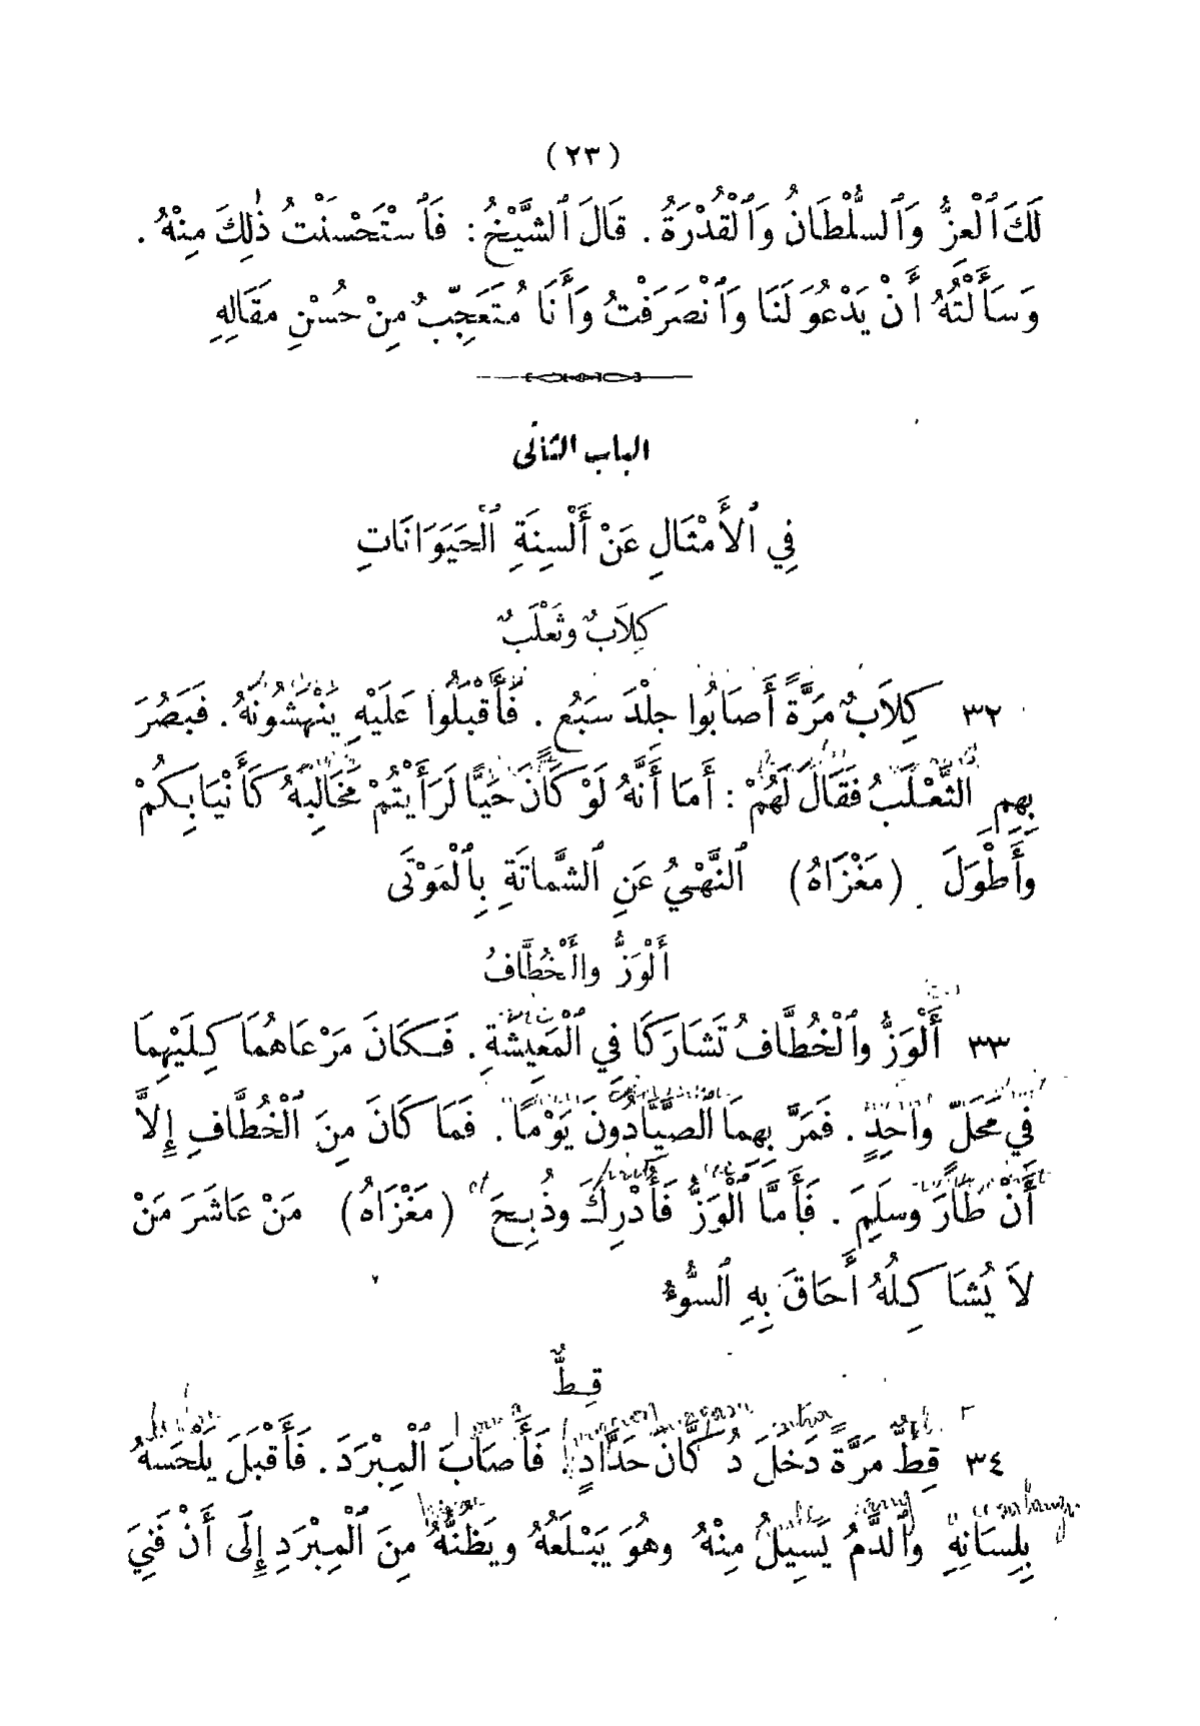 (٢٣)
لَكَ ٱلْعِزُّ وَٱلسُّلْطَانُ وَٱلْقُدْرَةُ . قَالَ ٱلشَّيْخُ : فَٱسْتَحْسَنْتُ ذٰلِكَ مِنْهُ .
وَسَأَلْتُهُ أَنْ يَدْعُوَ لَنَا وَٱنْصَرَفْتُ وَأَنَا مُتَعَجِّبٌ مِنْ حُسْنِ مَقَالِهِ
الباب الثانى
فِي ٱلأَمْثَالِ عَنْ أَلْسِنَةِ ٱلْحَيَوَانَاتِ
كِلَابٌ وثَعْلَبٌ
٣٢ كِلَابٌ مَرَّةً أَصَابُوا جِلْدَ سَبُعٍ . فَأَقْبَلُوا عَلَيْهِ يَنْهَشُونَهُ . فَبَصُرَ
بِهِمِ ٱلثَّعْلَبُ فَقَالَ لَهُمْ : أَمَا أَنَّهُ لَوْ كَانَ حَيًّا لَرَأَيْتُمْ مَخَالِبَهُ كَأَنْيَابِكُمْ
وأَطْوَلَ . (مَغْزَاهُ) ٱلنَّهْيُ عَنِ ٱلشَّمَاتَةِ بِٱلْمَوْتَى
أَلْوَزُّ وٱلْخُطَّافُ
٣٣ أَلْوَزُّ وٱلْخُطَّافُ تَشَارَكَا فِي ٱلْمَعِيشَةِ . فَكَانَ مَرْعَاهُمَا كِلَيْهِمَا
فِي مَحَلٍّ وَاحِدٍ . فَمَرَّ بِهِمَا ٱلصَّيَّادُونَ يَوْمًا . فَمَا كَانَ مِنَ ٱلْخُطَّافِ إِلاَّ
أَنْ طَارَ وسَلِمَ . فَأَمَّا ٱلْوَزُّ فَأُدْرِكَ وذُبِحَ (مَغْزَاهُ) مَنْ عَاشَرَ مَنْ
لَا يُشَاكِلُهُ أَحَاقَ بِهِ ٱلسُّوءُ
قِطٌّ
٣٤ قِطٌّ مَرَّةً دَخَلَ دُكَّانَ حَدَّادٍ . فَأَصَابَ ٱلْمِبْرَدَ . فَأَقْبَلَ يَلْحَسُهُ
بِلِسَانِهِ وٱلدَّمُ يَسِيلُ مِنْهُ وهُوَ يَبْلَعُهُ ويَظُنُّهُ مِنَ ٱلْمِبْرَدِ إِلَى أَنْ فَنِيَ